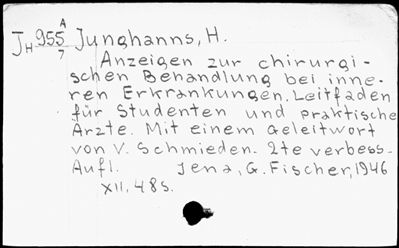 A
JH 955 Junghanns, H.
7
Anzeigen zur chirurgi-
schen Behandlung bei inne-
ren Erkrankungen. Leitfaden
für Studenten und praktische
Ärzte. Mit einem Geleitwort
von V. Schmieden. 2te verbess.
Aufl. Jena, G. Fischer, 1946
XII, 48 s.